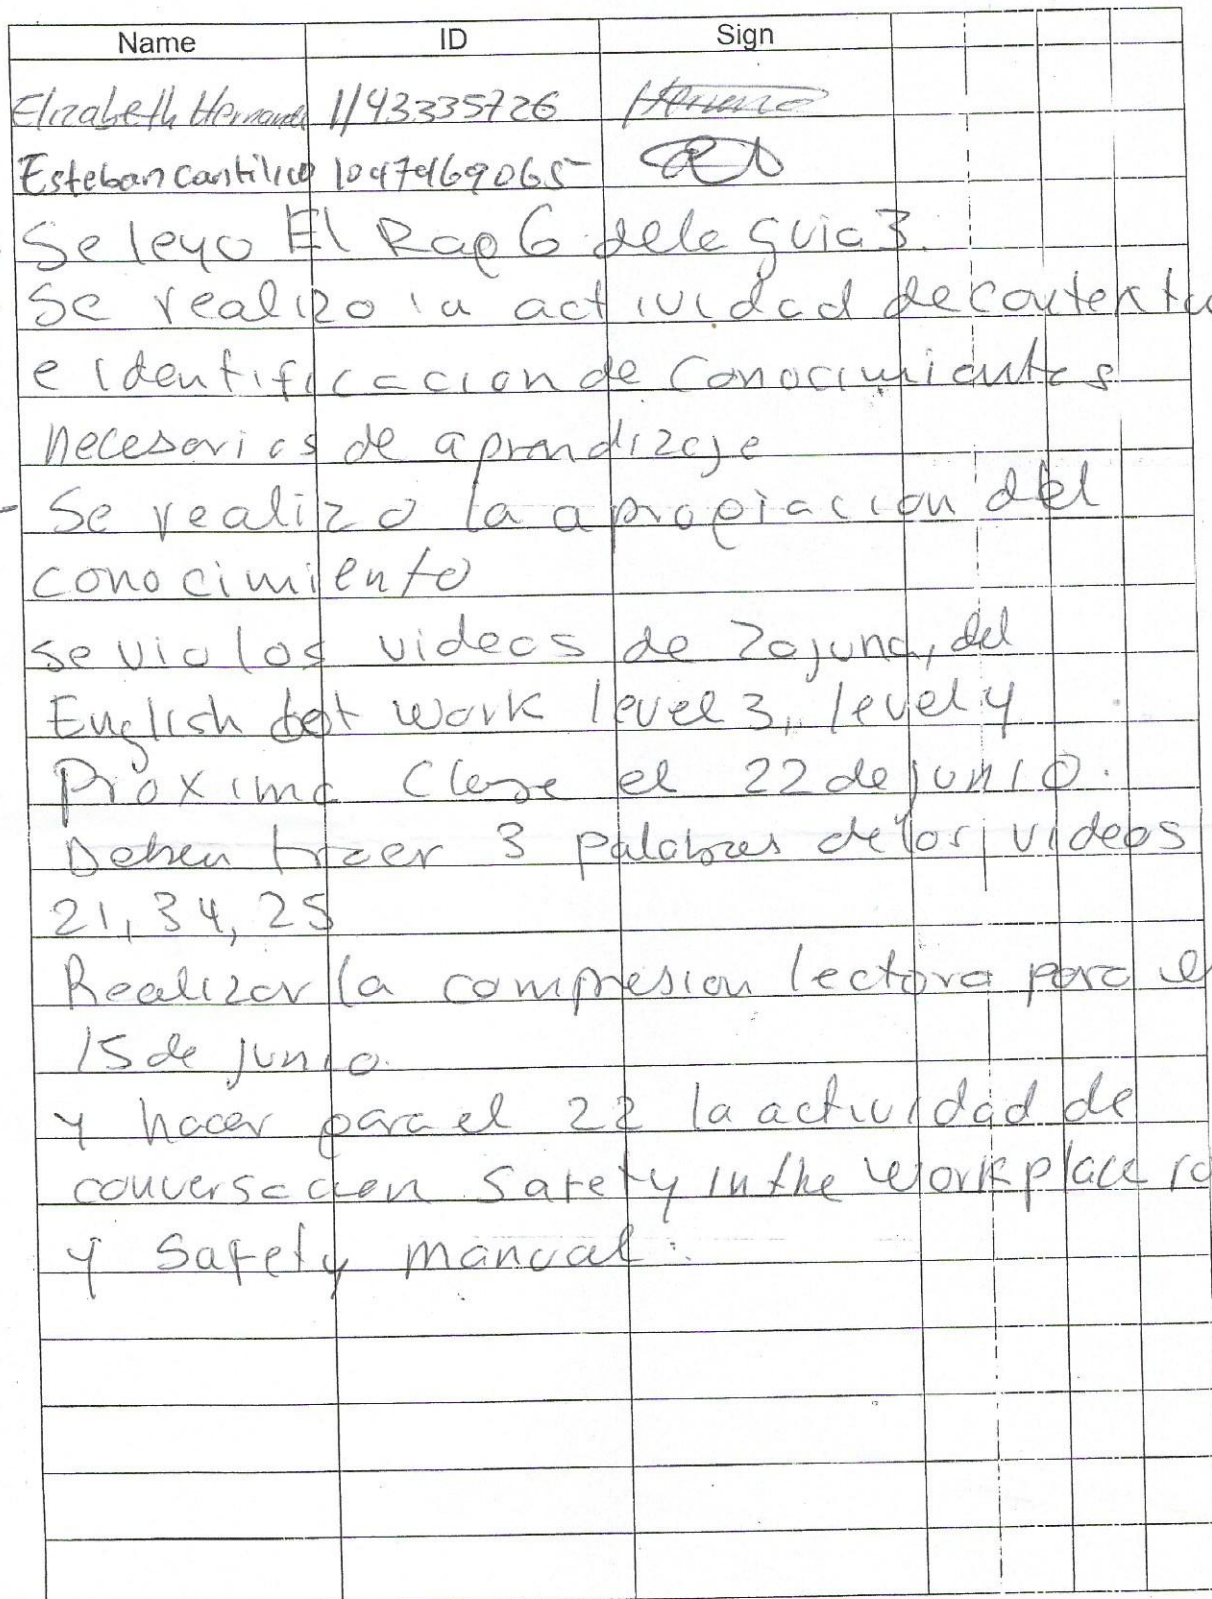 Name ID Sign
Elizabeth Hernande 1143335726
Esteban cantillo 1047469065
Se leyo El Rap 6 dela guia 3.
Se realizo la actividad de contextu
e identificacion de conocimientos
necesarios de aprendizaje
- Se realizo la apropiacion del
conocimiento
se vio los videos de Zajuna, del
English work level 3, level 4
Proxima Clase el 22 de junio.
Deben traer 3 palabras de los videos
21, 34, 25
Realizar la compresion lectora para el
15 de junio.
y hacer para el 22 la actividad de
conversacion Safety in the workplace ro
y Safety manual.